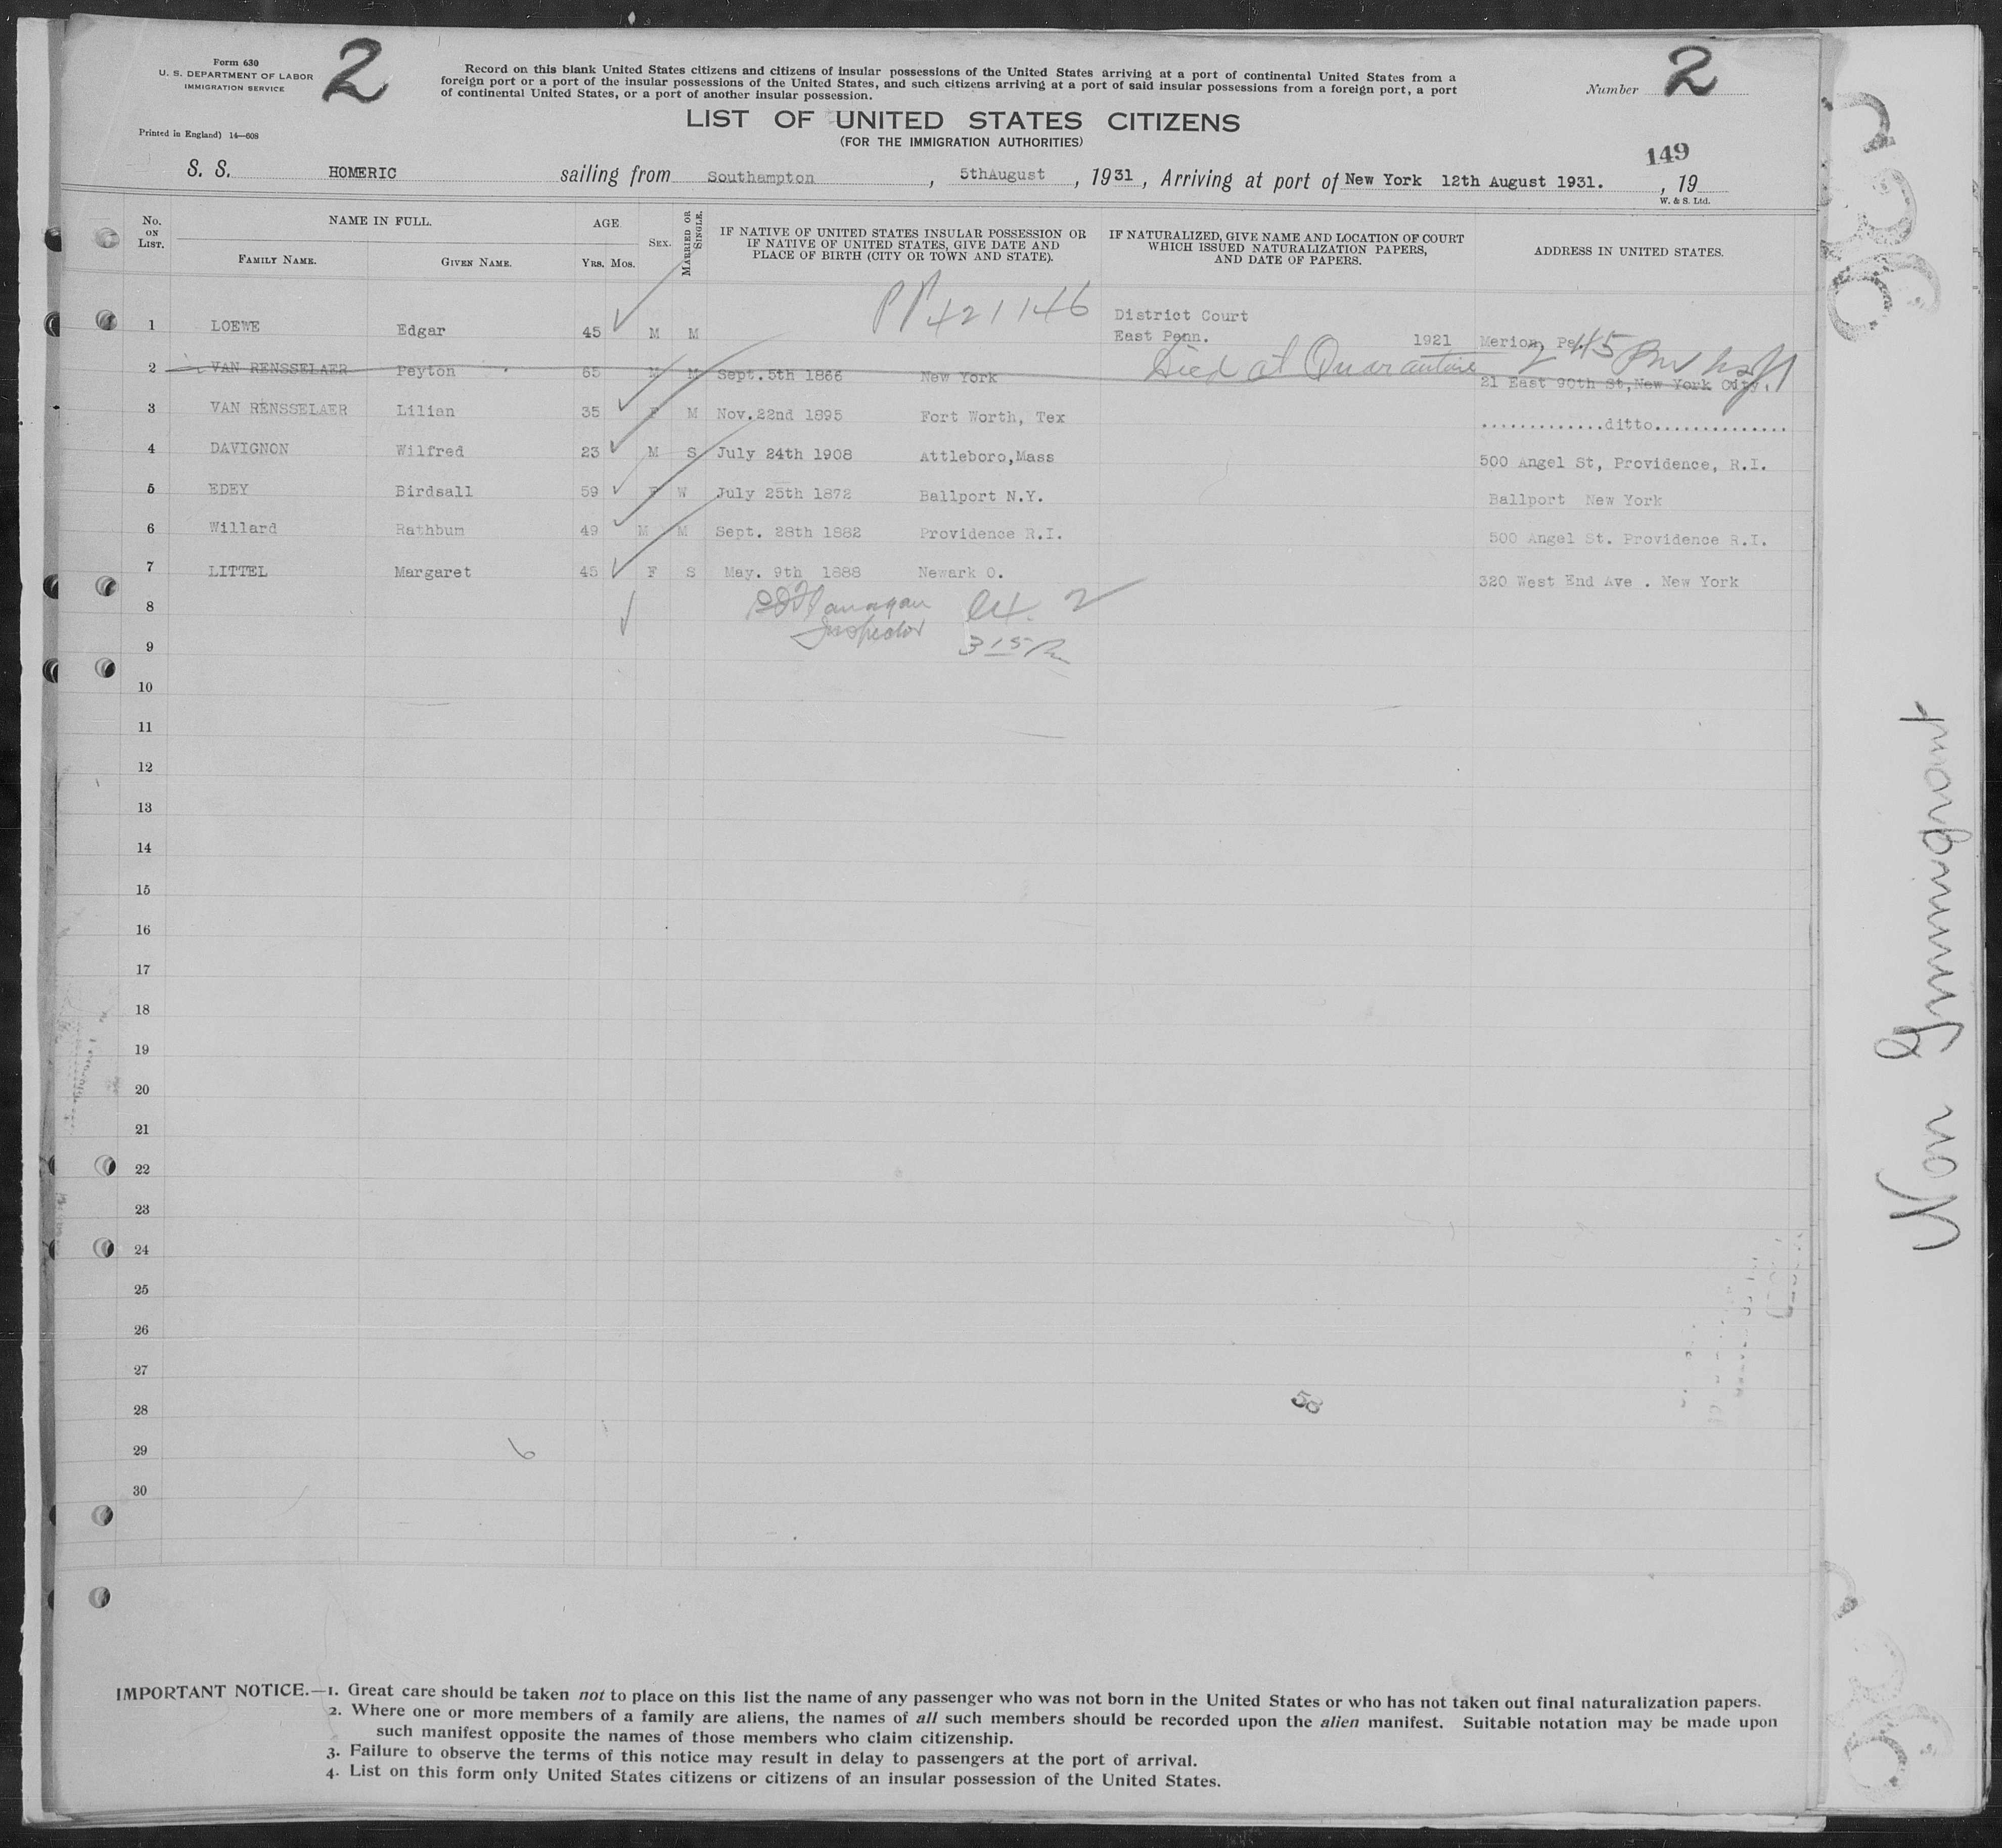 Form 630
U. S. DEPARTMENT OF LABOR
IMMIGRATION SERVICE
2
Printed in England) 14—608
Record on this blank United States citizens and citizens of insular possessions of the United States arriving at a port of continental United States from a
foreign port or a port of the insular possessions of the United States, and such citizens arriving at a port of said insular possessions from a foreign port, a port
of continental United States, or a port of another insular possession.
Number 2
LIST OF UNITED STATES CITIZENS
(FOR THE IMMIGRATION AUTHORITIES)
149
S. S. HOMERIC sailing from Southampton, 5thAugust, 1931, Arriving at port of New York 12th August 1931., 19
W. & S. Ltd.
No. ON LIST. NAME IN FULL. FAMILY NAME. GIVEN NAME. AGE. YRS. MOS. SEX. MARRIED OR SINGLE. IF NATIVE OF UNITED STATES INSULAR POSSESSION OR IF NATIVE OF UNITED STATES, GIVE DATE AND PLACE OF BIRTH (CITY OR TOWN AND STATE). IF NATURALIZED, GIVE NAME AND LOCATION OF COURT WHICH ISSUED NATURALIZATION PAPERS, AND DATE OF PAPERS. ADDRESS IN UNITED STATES.
PP 421146
1 LOEWE Edgar 45 M M District Court East Penn. 1921 Merion, Pa.
2 VAN RENSSELAER Peyton 65 M M Sept.5th 1866 New York Died at Quarantine 2 45 21 East 90th St,New York City.
3 VAN RENSSELAER Lilian 35 F M Nov.22nd 1895 Fort Worth, Tex .............ditto..............
4 DAVIGNON Wilfred 23 M S July 24th 1908 Attleboro,Mass 500 Angel St, Providence, R.I.
5 EDEY Birdsall 59 F W July 25th 1872 Ballport N.Y. Ballport New York
6 Willard Rathbum 49 M M Sept. 28th 1882 Providence R.I. 500 Angel St. Providence R.I.
7 LITTEL Margaret 45 F S May. 9th 1888 Newark O. 320 West End Ave . New York
8 Flanagan 2
Inspector
9 315
10
11
12
13
14
15
16
17
18
19
20
21
22
23
24
25
26
27
28
58
29
6
30
IMPORTANT NOTICE.—1. Great care should be taken not to place on this list the name of any passenger who was not born in the United States or who has not taken out final naturalization papers.
2. Where one or more members of a family are aliens, the names of all such members should be recorded upon the alien manifest. Suitable notation may be made upon
such manifest opposite the names of those members who claim citizenship.
3. Failure to observe the terms of this notice may result in delay to passengers at the port of arrival.
4. List on this form only United States citizens or citizens of an insular possession of the United States.
Non Immigrant